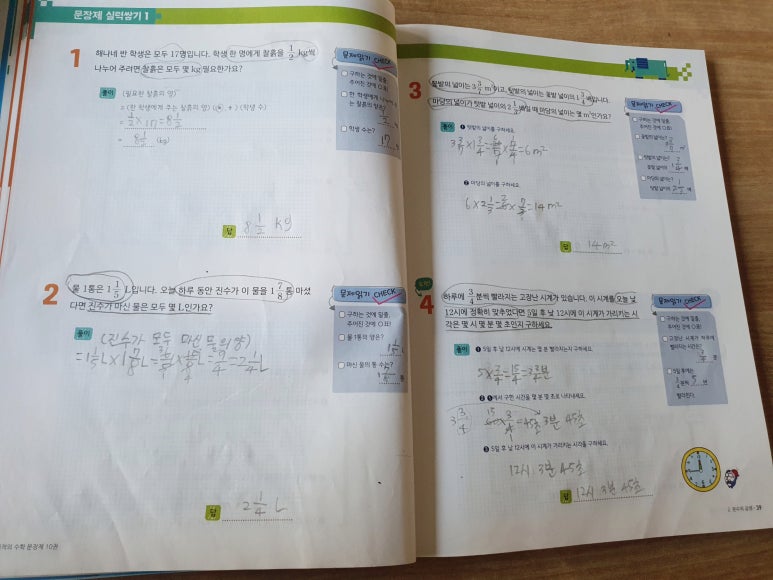 문장제 실력쌓기 1
1
해나네 반 학생은 모두 17명입니다. 학생 한 명에게 찰흙을 1/2 kg씩
나누어 주려면 찰흙은 모두 몇 kg 필요한가요?
풀이
(필요한 찰흙의 양)
= (한 학생에게 주는 찰흙의 양) (×, ÷) (학생 수)
= 1/2 × 17 = 8 1/2
= 8 1/2 (kg)
답 8 1/2 kg
문제읽기 CHECK
구하는 것에 밑줄,
주어진 것에 ○표!
한 학생에게
는 찰흙의 양은?
학생 수는? 17 명
2
물 1통은 1 1/5 L입니다. 오늘 하루 동안 진수가 이 물을 1 7/8 통 마셨
다면 진수가 마신 물은 모두 몇 L인가요?
풀이
(진수가 모두 마신 물의 양)
= 1 1/5 L × 1 7/8 L = = 9/4 = 2 1/4 L
답 2 1/4 L
문제읽기 CHECK
구하는 것에 밑줄,
주어진 것에 ○표!
물 1통의 양은?
1 1/5 L
마신 물의 통 수는?
통
수학 문장제 10권
3
꽃밭의 넓이는 3 3/7 m²이고, 텃밭의 넓이는 꽃밭 넓이의 1 3/4 배입니다.
마당의 넓이가 텃밭 넓이의 2 1/3 배일 때 마당의 넓이는 몇 m²인가요?
풀이
❶ 텃밭의 넓이를 구하세요.
= 6 m²
❷ 마당의 넓이를 구하세요.
6 × 2 1/3 = = 14 m²
답 14 m²
문제읽기 CHECK
구하는 것에 밑줄,
주어진 것에 ○표!
꽃밭의 넓이는?
m²
텃밭의 넓이는?
꽃밭 넓이의 1 3/4 배
마당의 넓이는?
텃밭 넓이의 2 1/3 배
도전!
4
하루에 3/4 분씩 빨라지는 고장난 시계가 있습니다. 이 시계를 오늘 낮
12시에 정확히 맞추었다면 5일 후 낮 12시에 이 시계가 가리키는 시
각은 몇 시 몇 분 몇 초인지 구하세요.
풀이
❶ 5일 후 낮 12시에 시계는 몇 분 빨라지는지 구하세요.
5 × 3/4 = 15/4 = 3 3/4 분
❷ ❶에서 구한 시간을 몇 분 몇 초로 나타내세요.
3 3/4 = 45초 3분 45초
❸ 5일 후 낮 12시에 이 시계가 가리키는 시각을 구하세요.
12시 3분 45초
답 12시 3분 45초
문제읽기 CHECK
구하는 것에 밑줄,
주어진 것에 ○표!
고장난 시계가 하루에
빨라지는 시간은?
3/4 분
5일 후에는?
3/4 분씩 5 번
빨라진다.
2. 분수의 곱셈 · 39